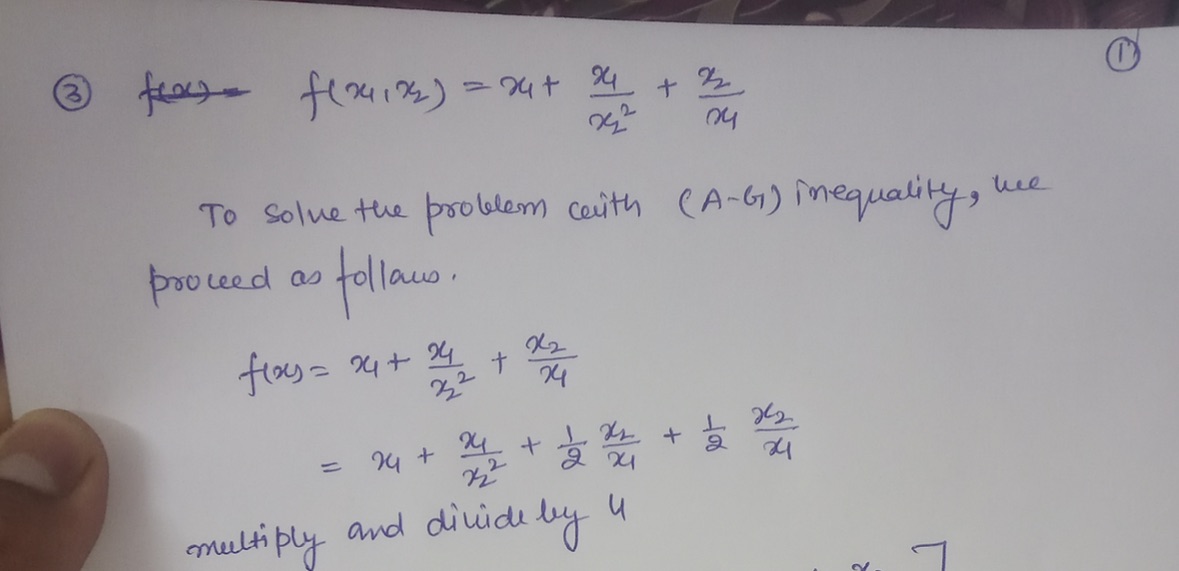 ①
③ f(x)= f(x₁, x₂) = x₁ + x₁/x₂² + x₂/x₁
To solve the problem with (A-G) inequality, we
proceed as follows.
f(x) = x₁ + x₁/x₂² + x₂/x₁
= x₁ + x₁/x₂² + 1/2 x₂/x₁ + 1/2 x₂/x₁
multiply and divide by 4